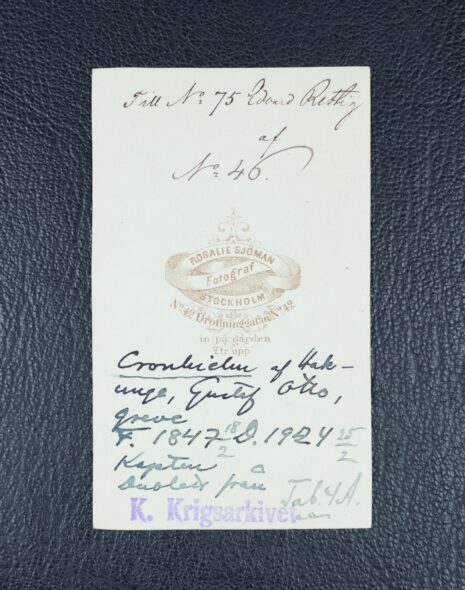 Till No 75 Edvard Rettig
af
No 46.
ROSALIE SJÖMAN
Fotograf
STOCKHOLM
No 42 Drottninggatan No 42
in på gården
2 tr upp
Cronhielm af Hak-
unge, Gustaf Otto,
greve
F. 1847 18/2 D. 1924 25/2
Kapten
från
Tab 4 A.
K. Krigsarkivet